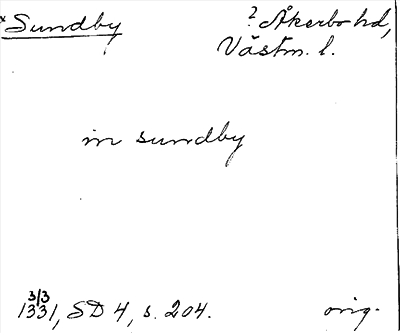 ×Sundby
? Åkerbo hd,
Västm. l.
in sundby
3/3
1331, SD 4, s. 204. orig.